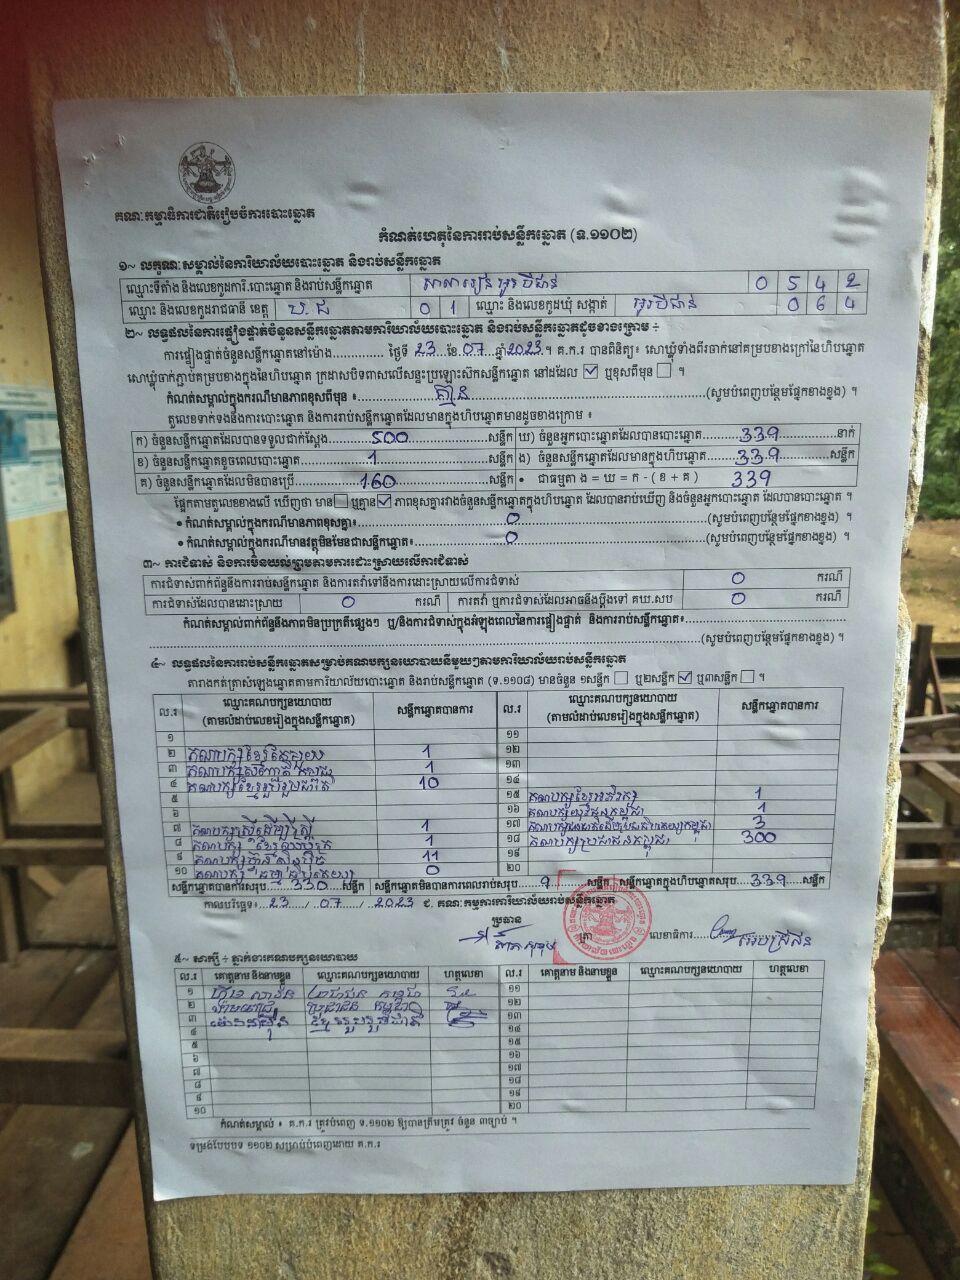 គណៈកម្មាធិការជាតិរៀបចំការបោះឆ្នោត
កំណត់ហេតុនៃការរាប់សន្លឹកឆ្នោត (ទ.១១០២)
១~ លក្ខណៈសម្គាល់នៃការិយាល័យបោះឆ្នោត និងរាប់សន្លឹកឆ្នោត
ឈ្មោះទីតាំង និងលេខកូដការិ.បោះឆ្នោត និងរាប់សន្លឹកឆ្នោត សាលារៀន អូរបីជាន់ 0 5 4 2
ឈ្មោះ និងលេខកូដរាជធានី ខេត្ត ប.ជ 0 1 ឈ្មោះ និងលេខកូដឃុំ សង្កាត់ អូរបីជាន់ 0 6 4
២~ លទ្ធផលនៃការផ្ទៀងផ្ទាត់ចំនួនសន្លឹកឆ្នោតតាមការិយាល័យបោះឆ្នោត និងរាប់សន្លឹកឆ្នោតដូចខាងក្រោម ÷
ការផ្ទៀងផ្ទាត់ចំនួនសន្លឹកឆ្នោតនៅម៉ោង.............. ថ្ងៃទី 23 ខែ 07 ឆ្នាំ 2023 ។ គ.ក.រ បានពិនិត្យ៖ សោឃ្លុំទាំងពីរចាក់នៅគម្របខាងក្រៅនៃហិបឆ្នោត
សោឃ្លុំចាក់ភ្ជាប់គម្របខាងក្នុងនៃហិបឆ្នោត ក្រដាសបិទពាសលើសន្ទះប្រឡោះស៊កសន្លឹកឆ្នោត នៅដដែល ☑ ឬខុសពីមុន ☐ ។
កំណត់សម្គាល់ក្នុងករណីមានភាពខុសពីមុន ៖ គ្មាន (សូមបំពេញបន្ថែមផ្នែកខាងខ្នង) ។
តួលេខទាក់ទងនឹងការបោះឆ្នោត និងការរាប់សន្លឹកឆ្នោតដែលមានក្នុងហិបឆ្នោតមានដូចខាងក្រោម ៖
ក) ចំនួនសន្លឹកឆ្នោតដែលបានទទួលជាក់ស្តែង 500 សន្លឹក ឃ) ចំនួនអ្នកបោះឆ្នោតដែលបានបោះឆ្នោត 339 នាក់
ខ) ចំនួនសន្លឹកឆ្នោតខូចពេលបោះឆ្នោត 1 សន្លឹក ង) ចំនួនសន្លឹកឆ្នោតដែលមានក្នុងហិបឆ្នោត 339 សន្លឹក
គ) ចំនួនសន្លឹកឆ្នោតដែលមិនបានប្រើ 160 សន្លឹក • ជាធម្មតា ង = ឃ = ក - ( ខ + គ ) 339
ផ្អែកតាមតួលេខខាងលើ ឃើញថា មាន ☐ ឬគ្មាន ☑ ភាពខុសគ្នារវាងចំនួនសន្លឹកឆ្នោតក្នុងហិបឆ្នោត ដែលបានរាប់ឃើញ និងចំនួនអ្នកបោះឆ្នោត ដែលបានបោះឆ្នោត ។
• កំណត់សម្គាល់ក្នុងករណីមានភាពខុសគ្នា៖ 0 (សូមបំពេញបន្ថែមផ្នែកខាងខ្នង) ។
• កំណត់សម្គាល់ក្នុងករណីមានវត្ថុមិនមែនជាសន្លឹកឆ្នោត៖ 0 (សូមបំពេញបន្ថែមផ្នែកខាងខ្នង) ។
៣~ ការជំទាស់ និងការមិនយល់ព្រមតាមការដោះស្រាយលើការជំទាស់
ការជំទាស់ពាក់ព័ន្ធនឹងការរាប់សន្លឹកឆ្នោត និងការតវ៉ាទៅនឹងការដោះស្រាយលើការជំទាស់ 0 ករណី
ការជំទាស់ដែលបានដោះស្រាយ 0 ករណី ការតវ៉ា ឬការជំទាស់ដែលអាចនឹងប្តឹងទៅ គឃ.សប 0 ករណី
កំណត់សម្គាល់ពាក់ព័ន្ធនឹងភាពមិនប្រក្រតីផ្សេងៗ ឬ/និងការជំទាស់ក្នុងអំឡុងពេលនៃការផ្ទៀងផ្ទាត់ និងការរាប់សន្លឹកឆ្នោត៖
(សូមបំពេញបន្ថែមផ្នែកខាងខ្នង) ។
៤~ លទ្ធផលនៃការរាប់សន្លឹកឆ្នោតសម្រាប់គណបក្សនយោបាយនីមួយៗតាមការិយាល័យរាប់សន្លឹកឆ្នោត
តារាងកត់ត្រាសំឡេងឆ្នោតតាមការិយាល័យបោះឆ្នោត និងរាប់សន្លឹកឆ្នោត (ទ.១១០៨) មានចំនួន ១សន្លឹក ☐ ឬ២សន្លឹក ☑ ឬ៣សន្លឹក ☐ ។
ល.រ ឈ្មោះគណបក្សនយោបាយ (តាមលំដាប់លេខរៀងក្នុងសន្លឹកឆ្នោត) សន្លឹកឆ្នោតបានការ ល.រ ឈ្មោះគណបក្សនយោបាយ (តាមលំដាប់លេខរៀងក្នុងសន្លឹកឆ្នោត) សន្លឹកឆ្នោតបានការ
១ ១១
២ គណបក្សខ្មែរតែមួយ 1 ១២
៣ 1 ១៣
៤ គណបក្សខ្មែររួបរួមជាតិ 10 ១៤
៥ ១៥ គណបក្សខ្មែរអភិវឌ្ឍ 1
៦ ១៦ គណបក្សយុវជនកម្ពុជា 1
៧ គណបក្សស្ត្រីដើម្បីស្ត្រី 1 ១៧ 3
៨ គណបក្ស 1 ១៨ គណបក្សប្រជាជនកម្ពុជា 300
៩ គណបក្ស 11 ១៩
១០ 0 ២០
សន្លឹកឆ្នោតបានការសរុប 330 សន្លឹក សន្លឹកឆ្នោតមិនបានការពេលរាប់សរុប 9 សន្លឹក សន្លឹកឆ្នោតក្នុងហិបឆ្នោតសរុប 339 សន្លឹក
កាលបរិច្ឆេទ៖ 23 / 07 / 2023 ជ. គណៈកម្មការការិយាល័យរាប់សន្លឹកឆ្នោត
ប្រធាន
ត្រា លេខាធិការ
៥~ សាក្សី ÷ ភ្នាក់ងារគណបក្សនយោបាយ
ល.រ គោត្តនាម និងនាមខ្លួន ឈ្មោះគណបក្សនយោបាយ ហត្ថលេខា ល.រ គោត្តនាម និងនាមខ្លួន ឈ្មោះគណបក្សនយោបាយ ហត្ថលេខា
១ ប្រជាជន កម្ពុជា ១១
២ ប្រជាជន កម្ពុជា ១២
៣ ខ្មែររួបរួមជាតិ ១៣
៤ ១៤
៥ ១៥
៦ ១៦
៧ ១៧
៨ ១៨
៩ ១៩
១០ ២០
កំណត់សម្គាល់ ៖ គ.ក.រ ត្រូវបំពេញ ទ.១១០២ ឱ្យបានត្រឹមត្រូវ ចំនួន ៣ច្បាប់ ។
ទម្រង់បែបបទ ១១០២ សម្រាប់បំពេញដោយ គ.ក.រ